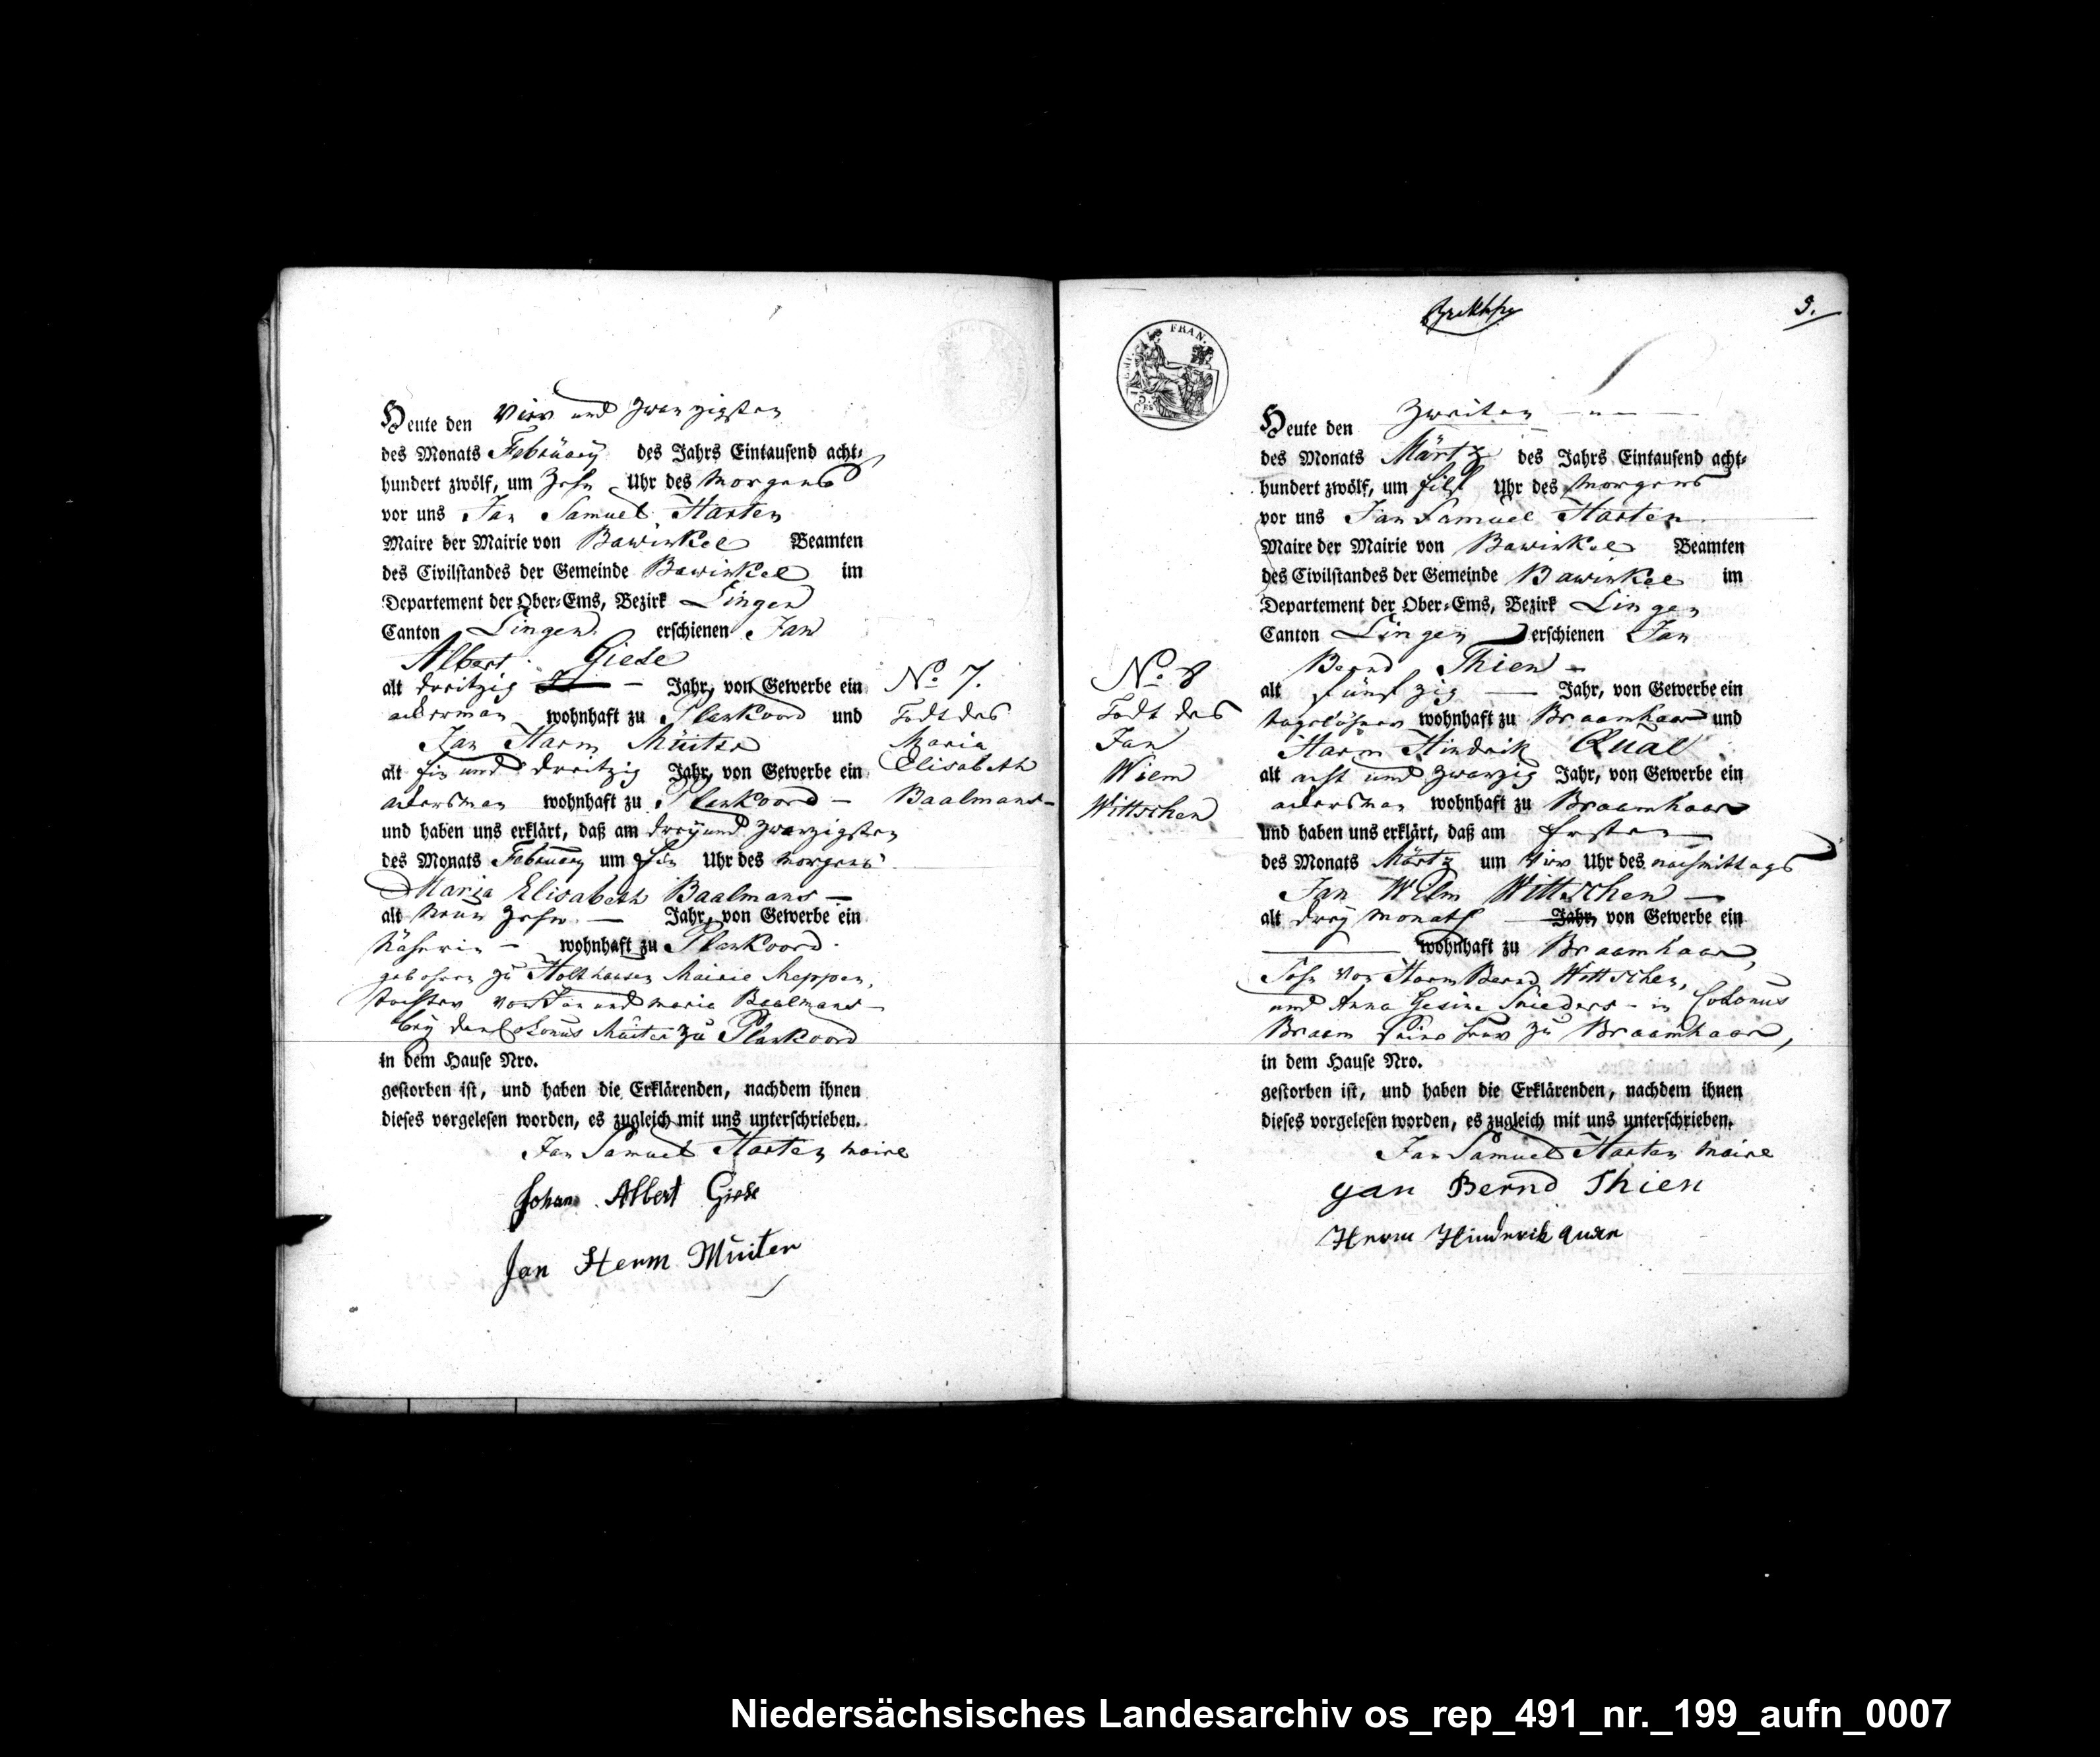 Heute den Vier und zwanzigsten
des Monats Februarÿ des Jahrs Eintausend acht⸗
hundert zwölf, um Zehn Uhr des Morgens
vor uns Jan Samuel Harten
Maire der Mairie von Bawinkel Beamten
des Civilstandes der Gemeinde Bawinkel im
Departement der Ober⸗Ems, Bezirk Lingen
Canton Lingen erschienen Jan
Albert Giese
alt dreitzig Jahr, von Gewerbe ein
ackersman wohnhaft zu Plankoord und
Jan Harm Müiter
alt ein und dreitzig Jahr, von Gewerbe ein
ackersman wohnhaft zu Plankoord
und haben uns erklärt, daß am dreÿ und zwanzigsten
des Monats Februarÿ um Ein Uhr des Morgens
Maria Elisabeth Baalmans
alt Neun Zehn Jahr, von Gewerbe ein
Näherin wohnhaft zu Plankoord
gebohren zu Holthausen Mairie Meppen,
Tochter von Jan und Maria Baalmans
beÿ den Colonus Müiter zu Plankoord
in dem Hause Nro.
gestorben ist, und haben die Erklärenden, nachdem ihnen
dieses vorgelesen worden, es zugleich mit uns unterschrieben.
Jan Samuel Harten Maire
Johan Albert Giese
Jan Herm Müiter
No. 7.
Todt des
Maria
Elisabeth
Baalmans
3.
FRAN.
No. 8
Todt des
Jan
Wilm
Wittschen
Heute den Zweiten
des Monats Märtz des Jahrs Eintausend acht⸗
hundert zwölf, um Eilf Uhr des Morgens
vor uns Jan Samuel Harten
Maire der Mairie von Bawinkel Beamten
des Civilstandes der Gemeinde Bawinkel im
Departement der Ober⸗Ems, Bezirk Lingen
Canton Lingen erschienen Jan
Bernd Thien
alt fünfzig Jahr, von Gewerbe ein
tagelöhner wohnhaft zu Braamhaar und
Harm Hindrik Qual
alt acht und zwanzig Jahr, von Gewerbe ein
ackersman wohnhaft zu Braamhaar
und haben uns erklärt, daß am Ersten
des Monats Märtz um Vier Uhr des nachmittags
Jan Wilm Wittschen
alt dreÿ Monath Jahr, von Gewerbe ein
wohnhaft zu Braamhaar,
Sohn von Harm Bernd Wittschen,
und Anna Gesine Snieders in Colonus
Braam seine zu Braamhaar,
in dem Hause Nro.
gestorben ist, und haben die Erklärenden, nachdem ihnen
dieses vorgelesen worden, es zugleich mit uns unterschrieben.
Jan Samuel Harten Maire
Jan Bernd Thien
Herm Hinderik
Niedersächsisches Landesarchiv os_rep_491_nr._199_aufn_0007